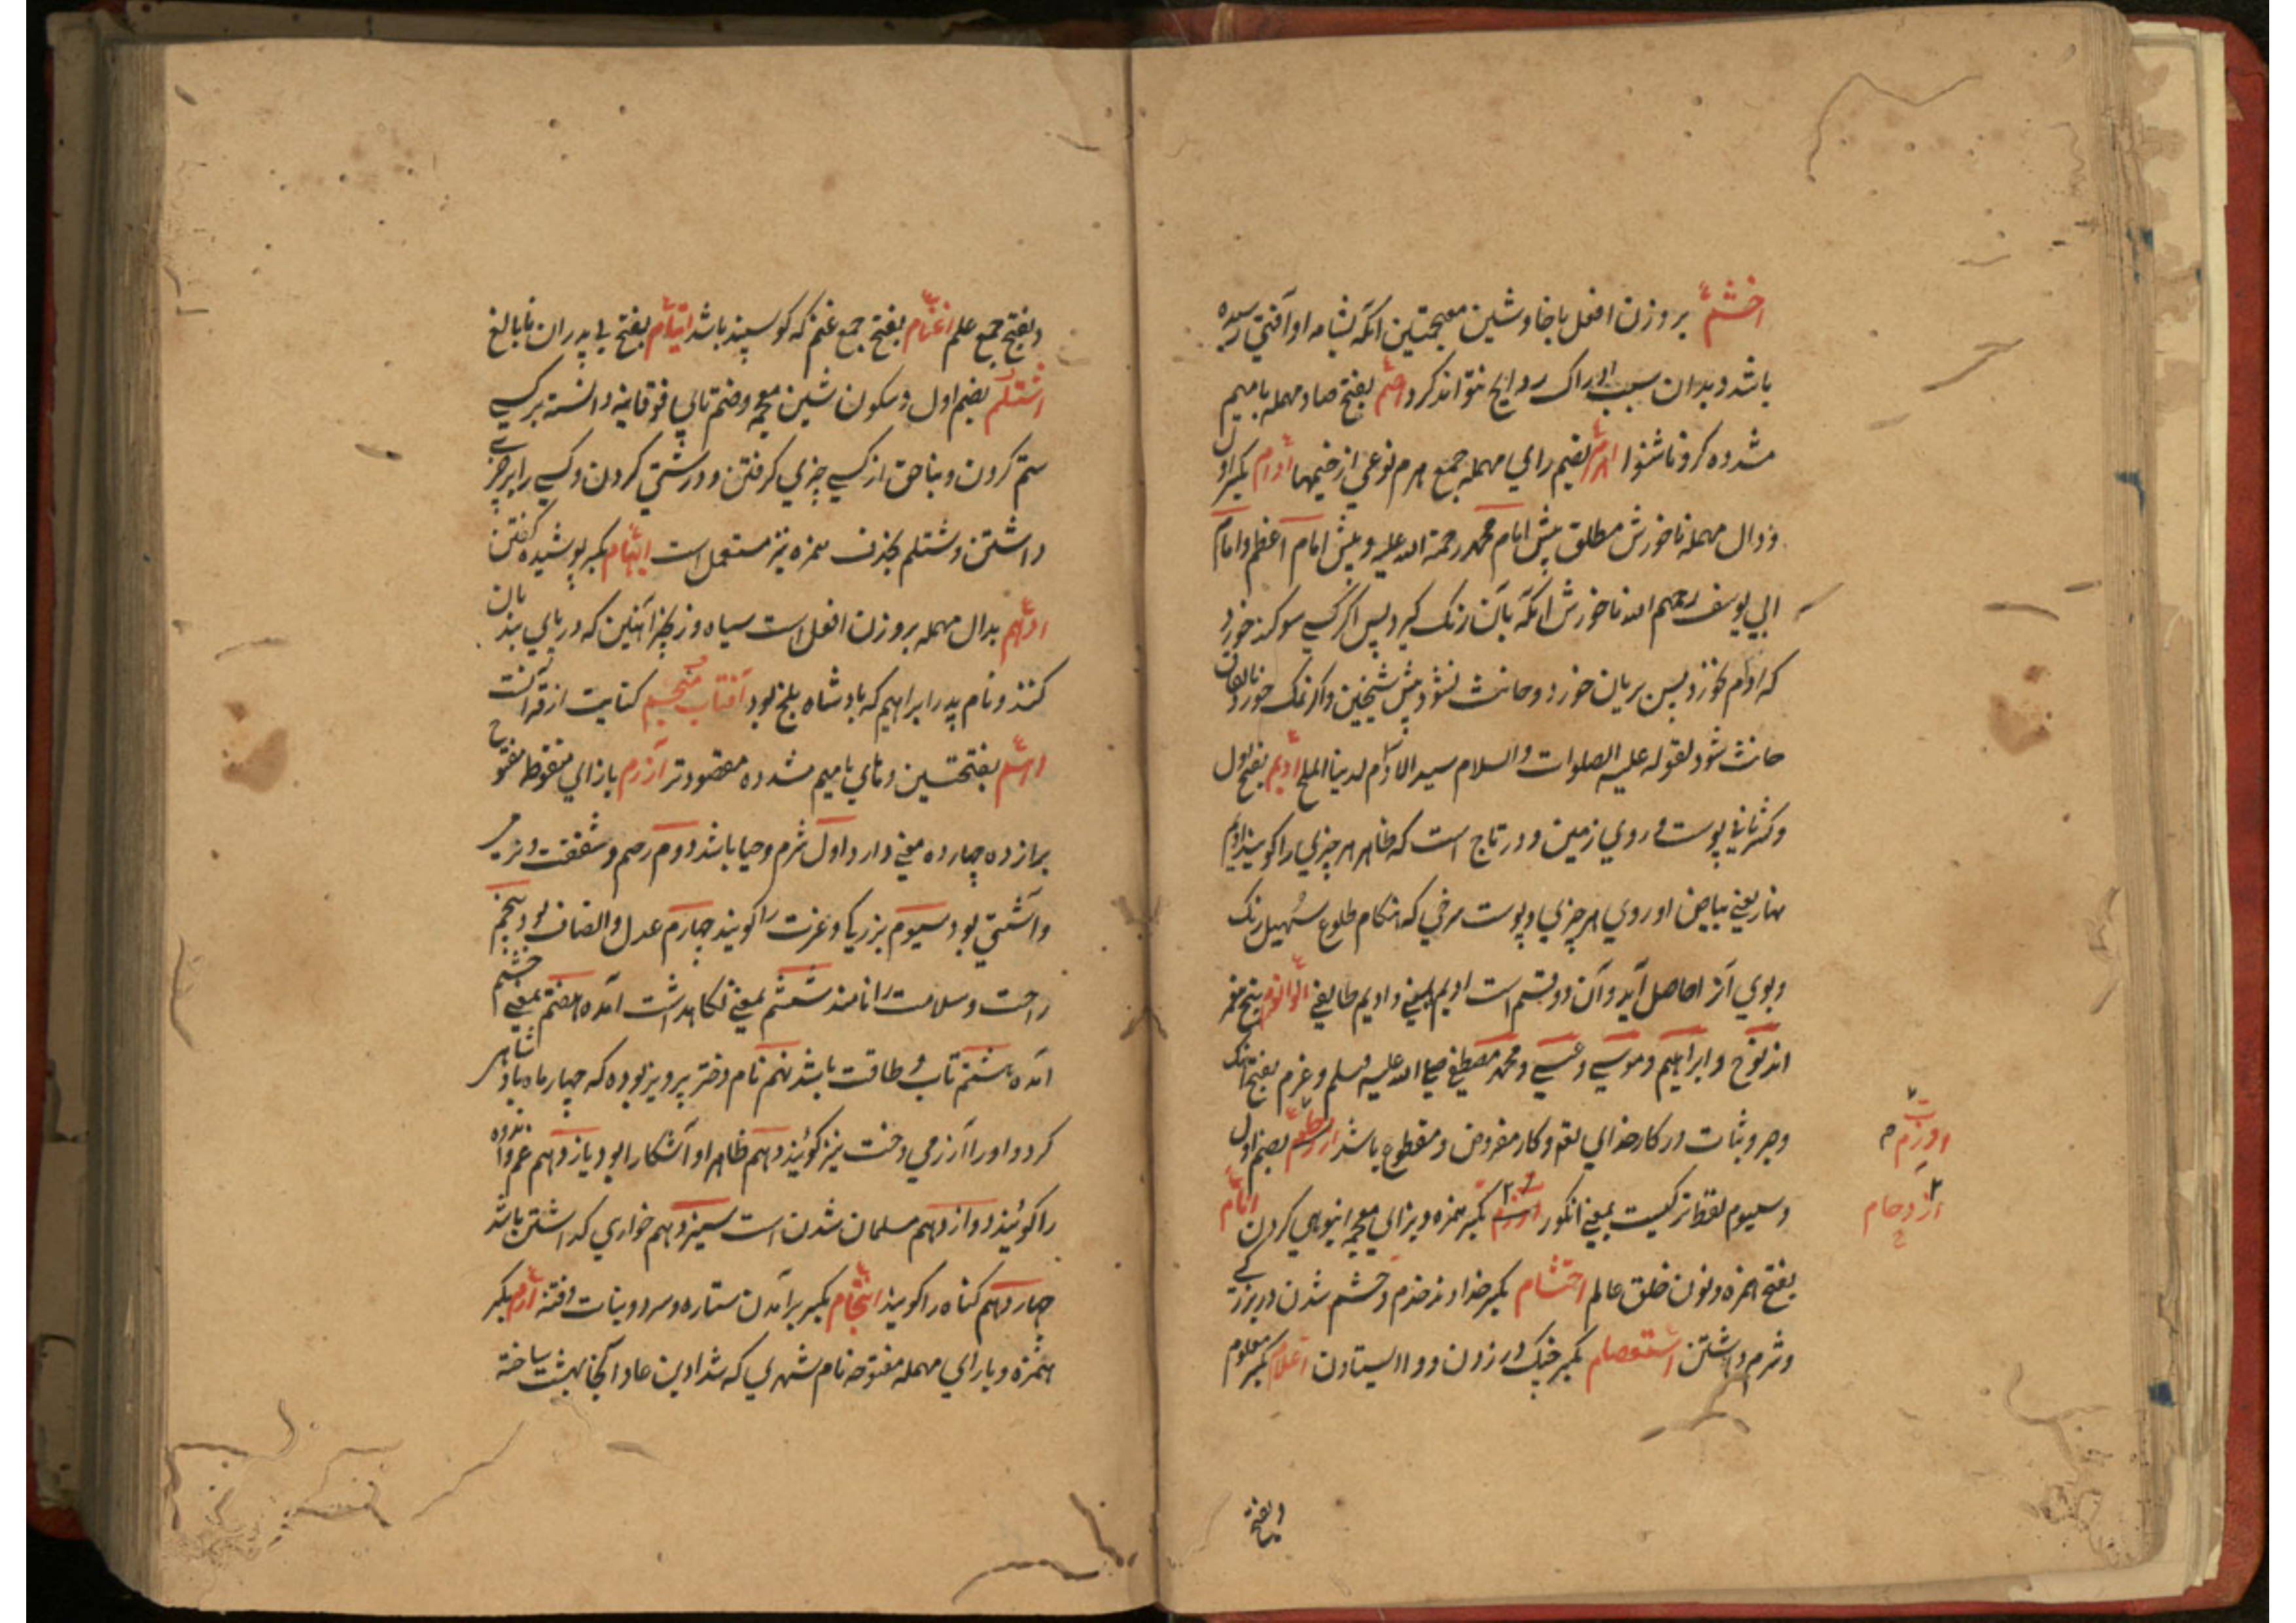 اخشم بر وزن افعل باخا و شین معجمتین انکه بشامه او آفتی رسیده
باشد و بدان سبب ادراک روایح نتواند کرد اصم بفتح صاد مهمله بامیم
مشدده کر و ناشنوا اهرم بضم رای مهمله جمع هرم نوعی از خیمها ادام بکسر اول
و دال مهمله ناخورش مطلق پیش امام محمد رحمة الله علیه و پیش امام اعظم و امام
ابی یوسف رحمهم الله ناخورش انکه بآن رنک کیرد پس اکر کسی سوکند خورد
که ادام نخورد پس بریان خورد و حانث نشود پیش شیخین و اکر نمک خورد بالاتفاق
حانث شود لقوله علیه الصلوات والسلام سید الادام لدینا الملح ادیم بفتح اول
و کسر ثانی پوست و روی زمین و در تاج است که ظاهر هر چیزی را کویند ادیم
نهار یعنی بیاض او روی هر چیزی و پوست سرخی که هنکام طلوع سهیل رنک
و بوی ازو حاصل آید و آن دو قسم است ادیم یمنی و ادیم طایفی اولوالعزم پنج نفر
اند نوح و ابراهیم و موسی و عیسی و محمد مصطفی صلی الله علیه وسلم و عزم بفتح آهنک
و صبر و ثبات در کار خدای تعه و کار مفروض و مقطوع باشد اوزم بضم اول
و سیوم لفظ ترکیست بمعنی انکور ازدحام بکسر همزه و بزای معجمه انبوهی کردن انام
بفتح همزه و نون خلق عالم احتشام بکسر خداوند خدم و حشم شدن و بزرکی
و شرم داشتن استعصام بکسر چنک در زدن و وا ایستادن اعلام بکسر معلوم
اوزم
ازدحام
و بفتح
و بفتح جمع علم اغنام بفتح جمع غنم که کوسپند باشد ایتام بفتح بی پدران نابالغ
اشتلم بضم اول و سکون شین معجمه و ضم تای فوقانیه دانسته بر کسی
ستم کردن و بناحق از کسی چیزی کرفتن و درشتی کردن و کسی را بر چیزی
داشتن و شتلم بحذف همزه نیز مستعمل است ابهام بکسر پوشیده کفتن
ادهم بدال مهمله بر وزن افعل است سیاه و زنجیر آهنین که در پای بندیان
کنند و نام پدر ابراهیم که بادشاه بلخ بود آفتاب منجم کنایت از قرآنست
اتم بفتحتین و تای بامیم مشدده مقصودتر آزرم بازای منقوط مفتوح
برازده چهارده معنی دارد اول شرم و حیا باشد دوم رحم و شفقت و نرمی
و آشتی بود سیوم بزرکی و عزت را کویند چهارم عدل و انصاف بود پنجم
راحت و سلامت را نامند ششم بمعنی نکاهداشت آمده هفتم بمعنی خشم
آمده هشتم تاب و طاقت باشد نهم نام دختر پرویز بوده که چهار ماه بادشاهی
کرد و او را آزرمی دخت نیز کویند دهم ظاهر او آشکارا بود یازدهم غم و اندوه
را کویند دوازدهم مسلمان شدن است سیزدهم خواری کداشتن باشد
چهاردهم کناه را کویند انجام بکسر برآمدن ستاره و سرد و نبات و فتنه ارم بکسر
همزه و بارای مهمله مفتوحه نام شهری که شداد بن عاد آنجا بهشت ساخته